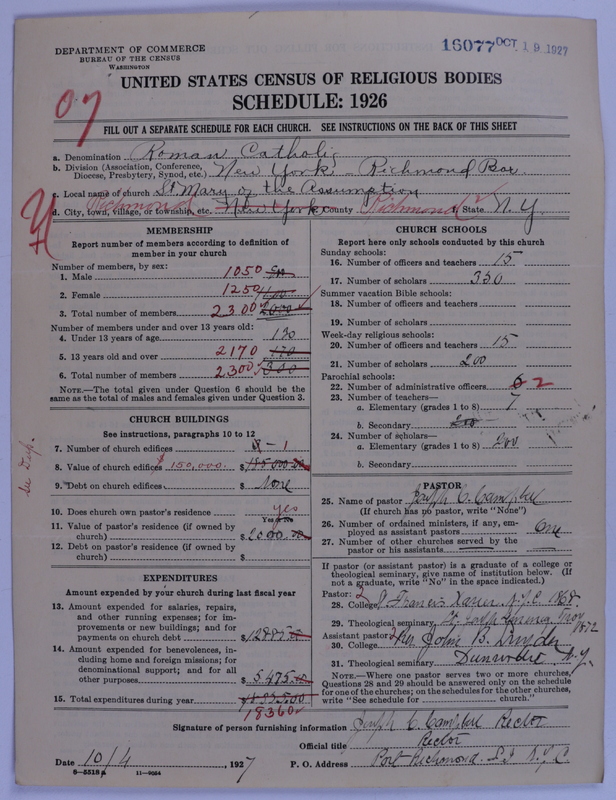 DEPARTMENT OF COMMERCE
BUREAU OF THE CENSUS
WASHINGTON
16077 OCT 19 1927
UNITED STATES CENSUS OF RELIGIOUS BODIES
SCHEDULE: 1926
07
FILL OUT A SEPARATE SCHEDULE FOR EACH CHURCH. SEE INSTRUCTIONS ON THE BACK OF THIS SHEET
a. Denomination Roman Catholic
b. Division (Association, Conference, Diocese, Presbytery, Synod, etc.) New York - Richmond Boro
c. Local name of church St Mary of the Assumption
d. City, town, village, or township, etc. Richmond New York County Richmond State N.Y.
MEMBERSHIP
Report number of members according to definition of
member in your church
Number of members, by sex:
1. Male 1050
2. Female 1250
3. Total number of members 2300 2000
Number of members under and over 13 years old:
4. Under 13 years of age 130
5. 13 years old and over 2170 170
6. Total number of members 2300 300
NOTE.—The total given under Question 6 should be
the same as the total of males and females given under Question 3.
CHURCH BUILDINGS
See instructions, paragraphs 10 to 12
7. Number of church edifices 1
8. Value of church edifices $150,000.
9. Debt on church edifices $ None
10. Does church own pastor's residence yes
Yes or no
11. Value of pastor's residence (if owned by
church) $
12. Debt on pastor's residence (if owned by
church) $
EXPENDITURES
Amount expended by your church during last fiscal year
13. Amount expended for salaries, repairs,
and other running expenses; for im-
provements or new buildings; and for
payments on church debt $12885
14. Amount expended for benevolences, in-
cluding home and foreign missions; for
denominational support; and for all
other purposes $5475
15. Total expenditures during year
18360
CHURCH SCHOOLS
Report here only schools conducted by this church
Sunday schools:
16. Number of officers and teachers 15
17. Number of scholars 350
Summer vacation Bible schools:
18. Number of officers and teachers
19. Number of scholars
Week-day religious schools:
20. Number of officers and teachers 15
21. Number of scholars 200
Parochial schools:
22. Number of administrative officers 2
23. Number of teachers—
a. Elementary (grades 1 to 8) 7
b. Secondary 200
24. Number of scholars—
a. Elementary (grades 1 to 8) 200
b. Secondary
PASTOR
25. Name of pastor Joseph C. Campbell
(If church has no pastor, write "None")
26. Number of ordained ministers, if any, em-
ployed as assistant pastors One
27. Number of other churches served by the
pastor or his assistants
If pastor (or assistant pastor) is a graduate of a college or
theological seminary, give name of institution below. (If
not a graduate, write "No" in the space indicated.)
Pastor:
28. College St Francis Xavier N.Y.C. 1868
29. Theological seminary St Joseph Troy
1872
Assistant pastor: Rev John B. Snyder
30. College
31. Theological seminary Dunwoodie N.Y.
NOTE.—Where one pastor serves two or more churches,
Questions 28 and 29 should be answered only on the schedule
for one of the churches; on the schedules for the other churches,
write "See schedule for ________ church."
Signature of person furnishing information Joseph C. Campbell Rector
Official title Rector
Date 10/4, 1927
P. O. Address Port Richmond. S.I. N.Y.C.
11—9054